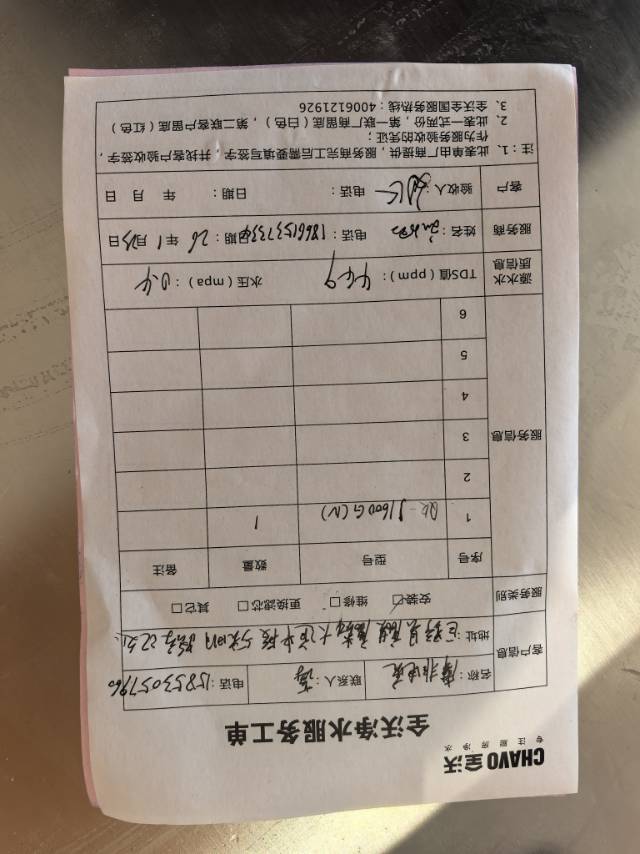 CHAVO全沃
专注厨房净水
全沃净水服务工单
客户信息
名称： 联系人： 电话：15853057960
地址：
服务类别
安装☑ 维修□ 更换滤芯□ 其它□
服务信息
序号 型号 数量 备注
1 1600G(N) 1
2
3
4
5
6
源水水质信息
TDS值（ppm）：449 水压（mpa）：0.4
服务商
姓名： 电话： 日期：26年1月 日
客户
验收人： 电话： 日期： 年 月 日
注：1、此表单由厂商提供，服务商完工后需要填写签字，并找客户验收签字，
作为服务验收的凭证；
2、此表一式两份，第一联厂商留底（白色），第二联客户留底（红色）
3、全沃全国服务热线：4006121926